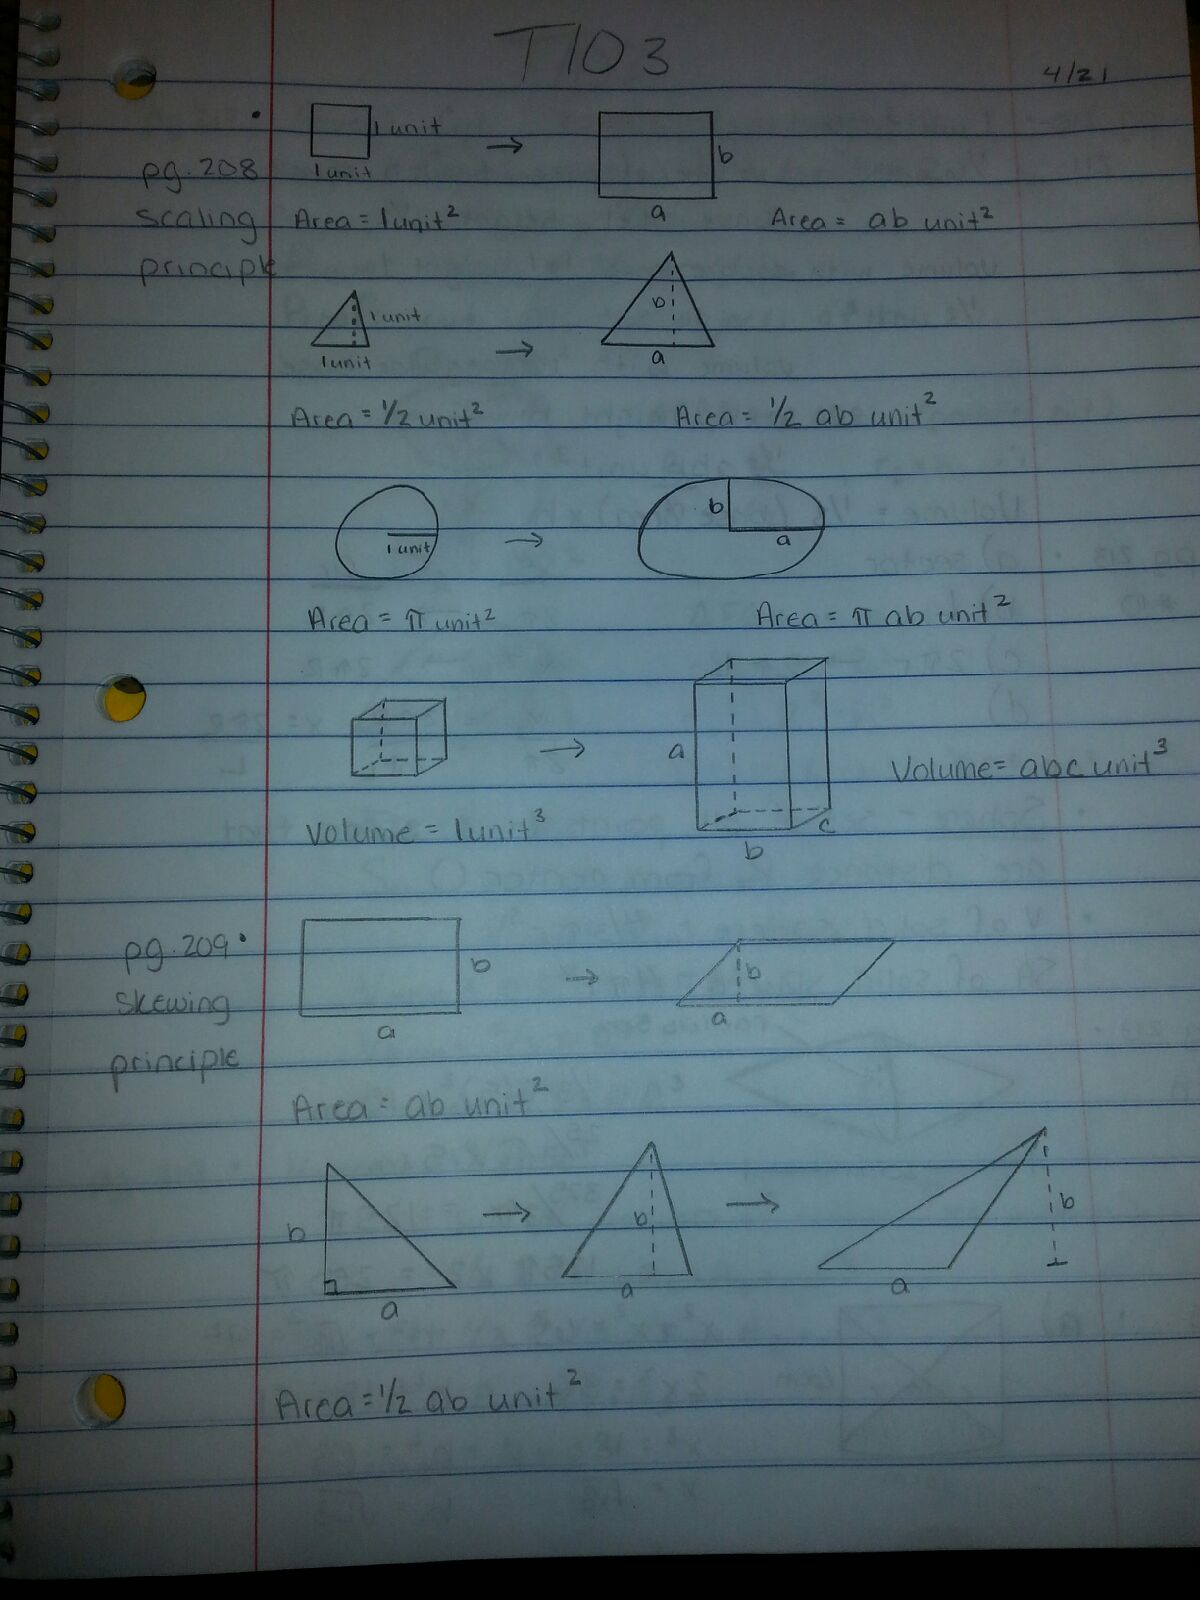 T103
4/21
1 unit
1 unit
b
a
pg. 208
scaling
principle
Area = 1 unit²
Area = ab unit²
1 unit
1 unit
b
a
Area = 1/2 unit²
Area = 1/2 ab unit²
1 unit
b
a
Area = π unit²
Area = π ab unit²
a
b
c
Volume = abc unit³
Volume = 1 unit³
pg. 209
skewing
principle
b
a
b
a
Area = ab unit²
b
a
b
a
b
a
Area = 1/2 ab unit²